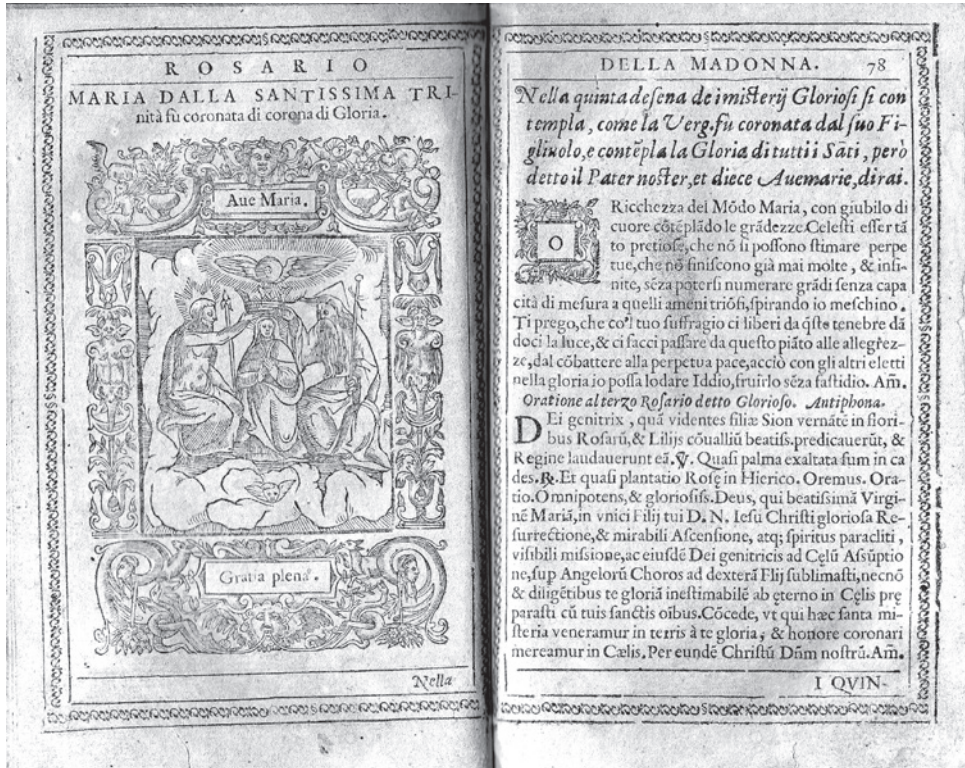 ROSARIO
MARIA DALLA SANTISSIMA TRI-
nità fu coronata di corona di Gloria.
Aue Maria.
Gratia plena.
Nella
DELLA MADONNA. 78
Nella quinta desena de i misterij Gloriosi si con
templa, come la Verg. fù coronata dal suo Fi-
gliuolo, e contẽpla la Gloria di tutti i Sãti, però
detto il Pater noster, et diece Auemarie, dirai.
O Ricchezza del Mõdo Maria, con giubilo di
cuore cõtẽplãdo le grãdezze Celesti esser tã
to pretiose, che nõ si possono stimare perpe
tue, che nõ finiscono già mai molte, & infi-
nite, sẽza potersi numerare grãdi senza capa
cità di mesura a quelli ameni triõfi, spirando io meschino.
Ti prego, che co'l tuo suffragio ci liberi da q̃ste tenebre dã
doci la luce, & ci facci passare da questo piãto alle allegrez-
ze, dal cõbattere alla perpetua pace, acciò con gli altri eletti
nella gloria io possa lodare Iddio, fruirlo sẽza fastidio. Am̃.
Oratione al terzo Rosario detto Glorioso. Antiphona.
DEi genitrix, quã videntes filiæ Sion vernãtẽ in fiori-
bus Rosarũ, & Lilijs cõualliũ beatiss. predicauerũt, &
Regine laudauerunt eã. ℣. Quasi palma exaltata sum in ca
des. ℟. Et quasi plantatio Rosę in Hierico. Oremus. Ora-
tio. Omnipotens, & gloriosiss. Deus, qui beatissimã Virgi-
nẽ Mariã, in vnici Filij tui D. N. Iesu Christi gloriosa Re-
surrectione, & mirabili Ascensione, atq; spiritus paracliti,
visibili missione, ac eiusdẽ Dei genitricis ad Cęlũ Assũptio
ne, sup Angelorũ Choros ad dexterã Flij sublimasti, necnõ
& diligẽtibus te gloriã inestimabilẽ ab ęterno in Cęlis prę
parasti cũ tuis sanctis oĩbus. Cõcede, vt qui hæc santa mi-
steria veneramur in terris à te gloria, & honore coronari
mereamur in Cælis. Per eundẽ Christũ Dñm nostrũ. Am̃.
I QVIN-